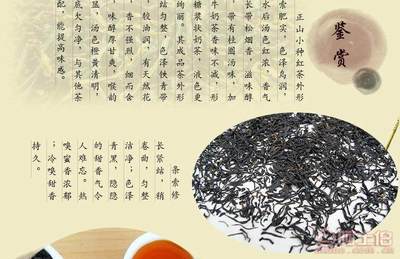 鉴赏
正山小种红茶外形
索肥实，色泽乌润，
水后汤色红浓，香气
长带松烟香，滋味醇
带有桂圆汤味，加
牛奶茶香味不减，形
糖浆状奶茶，液色更
绚丽，其成品茶外形
结匀整，色泽铁青带
，较油润，有天然花
，香不强烈，细而含
味醇厚甘爽，喉韵
显，汤色橙黄清明，
底大匀净，与其他茶
配，能提高味感。
条索修
长紧结，稍
卷曲，匀整
洁净；色泽
青黑，隐隐
的甜香气令
人难忘。热
嗅蜜香浓郁
；冷嗅甜香
持久。